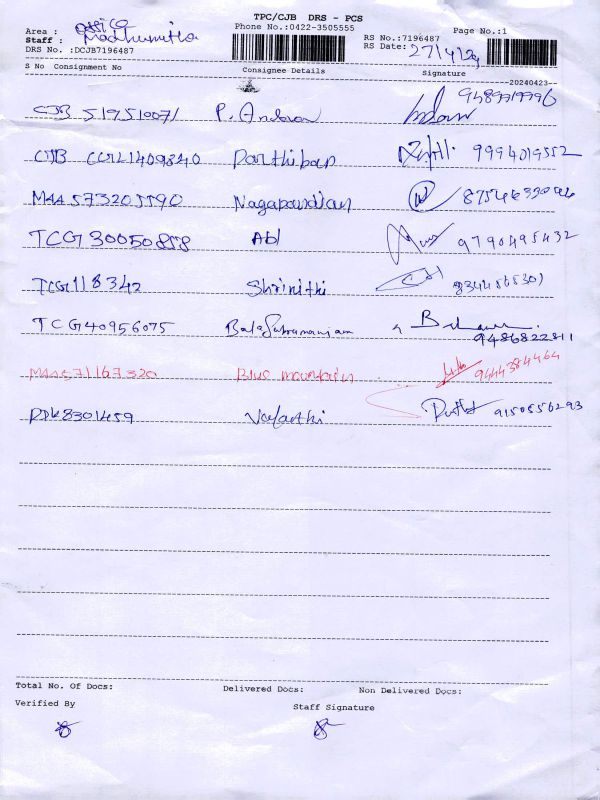 TPC/CJB DRS - PCS
Area : office Phone No.:0422-3505555 Page No.:1
Staff : Madhumitha RS No.:7196487
DRS No. :DCJB7196487 RS Date: 27/4/24
S No Consignment No Consignee Details Signature
--20240423--
CJB 519510071 P. Andavan 9489919996
CJB CCUL1409840 Parthiban 9994019552
MAA573205590 Nagapandian
TCG30050858 Abl 9790495432
TCG118342 Shrinithi 8344565301
TCG40956075 Balasubramaniam 9486822811
MAA571167320 Blue mountain 9444384464
PDK8301459 9150556293
Total No. Of Docs: Delivered Docs: Non Delivered Docs:
Verified By Staff Signature